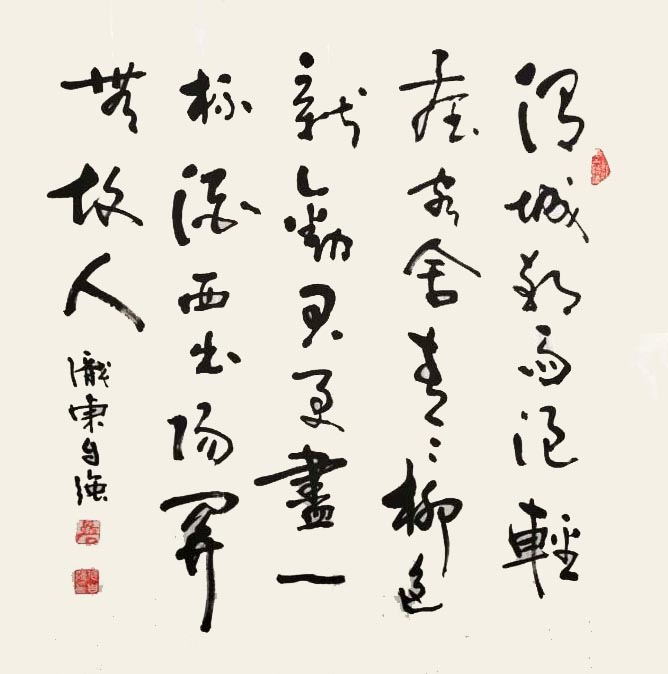 渭城朝雨浥輕
塵客舍青々柳色
新勸君更盡一
杯酒西出陽關
無故人
東自強